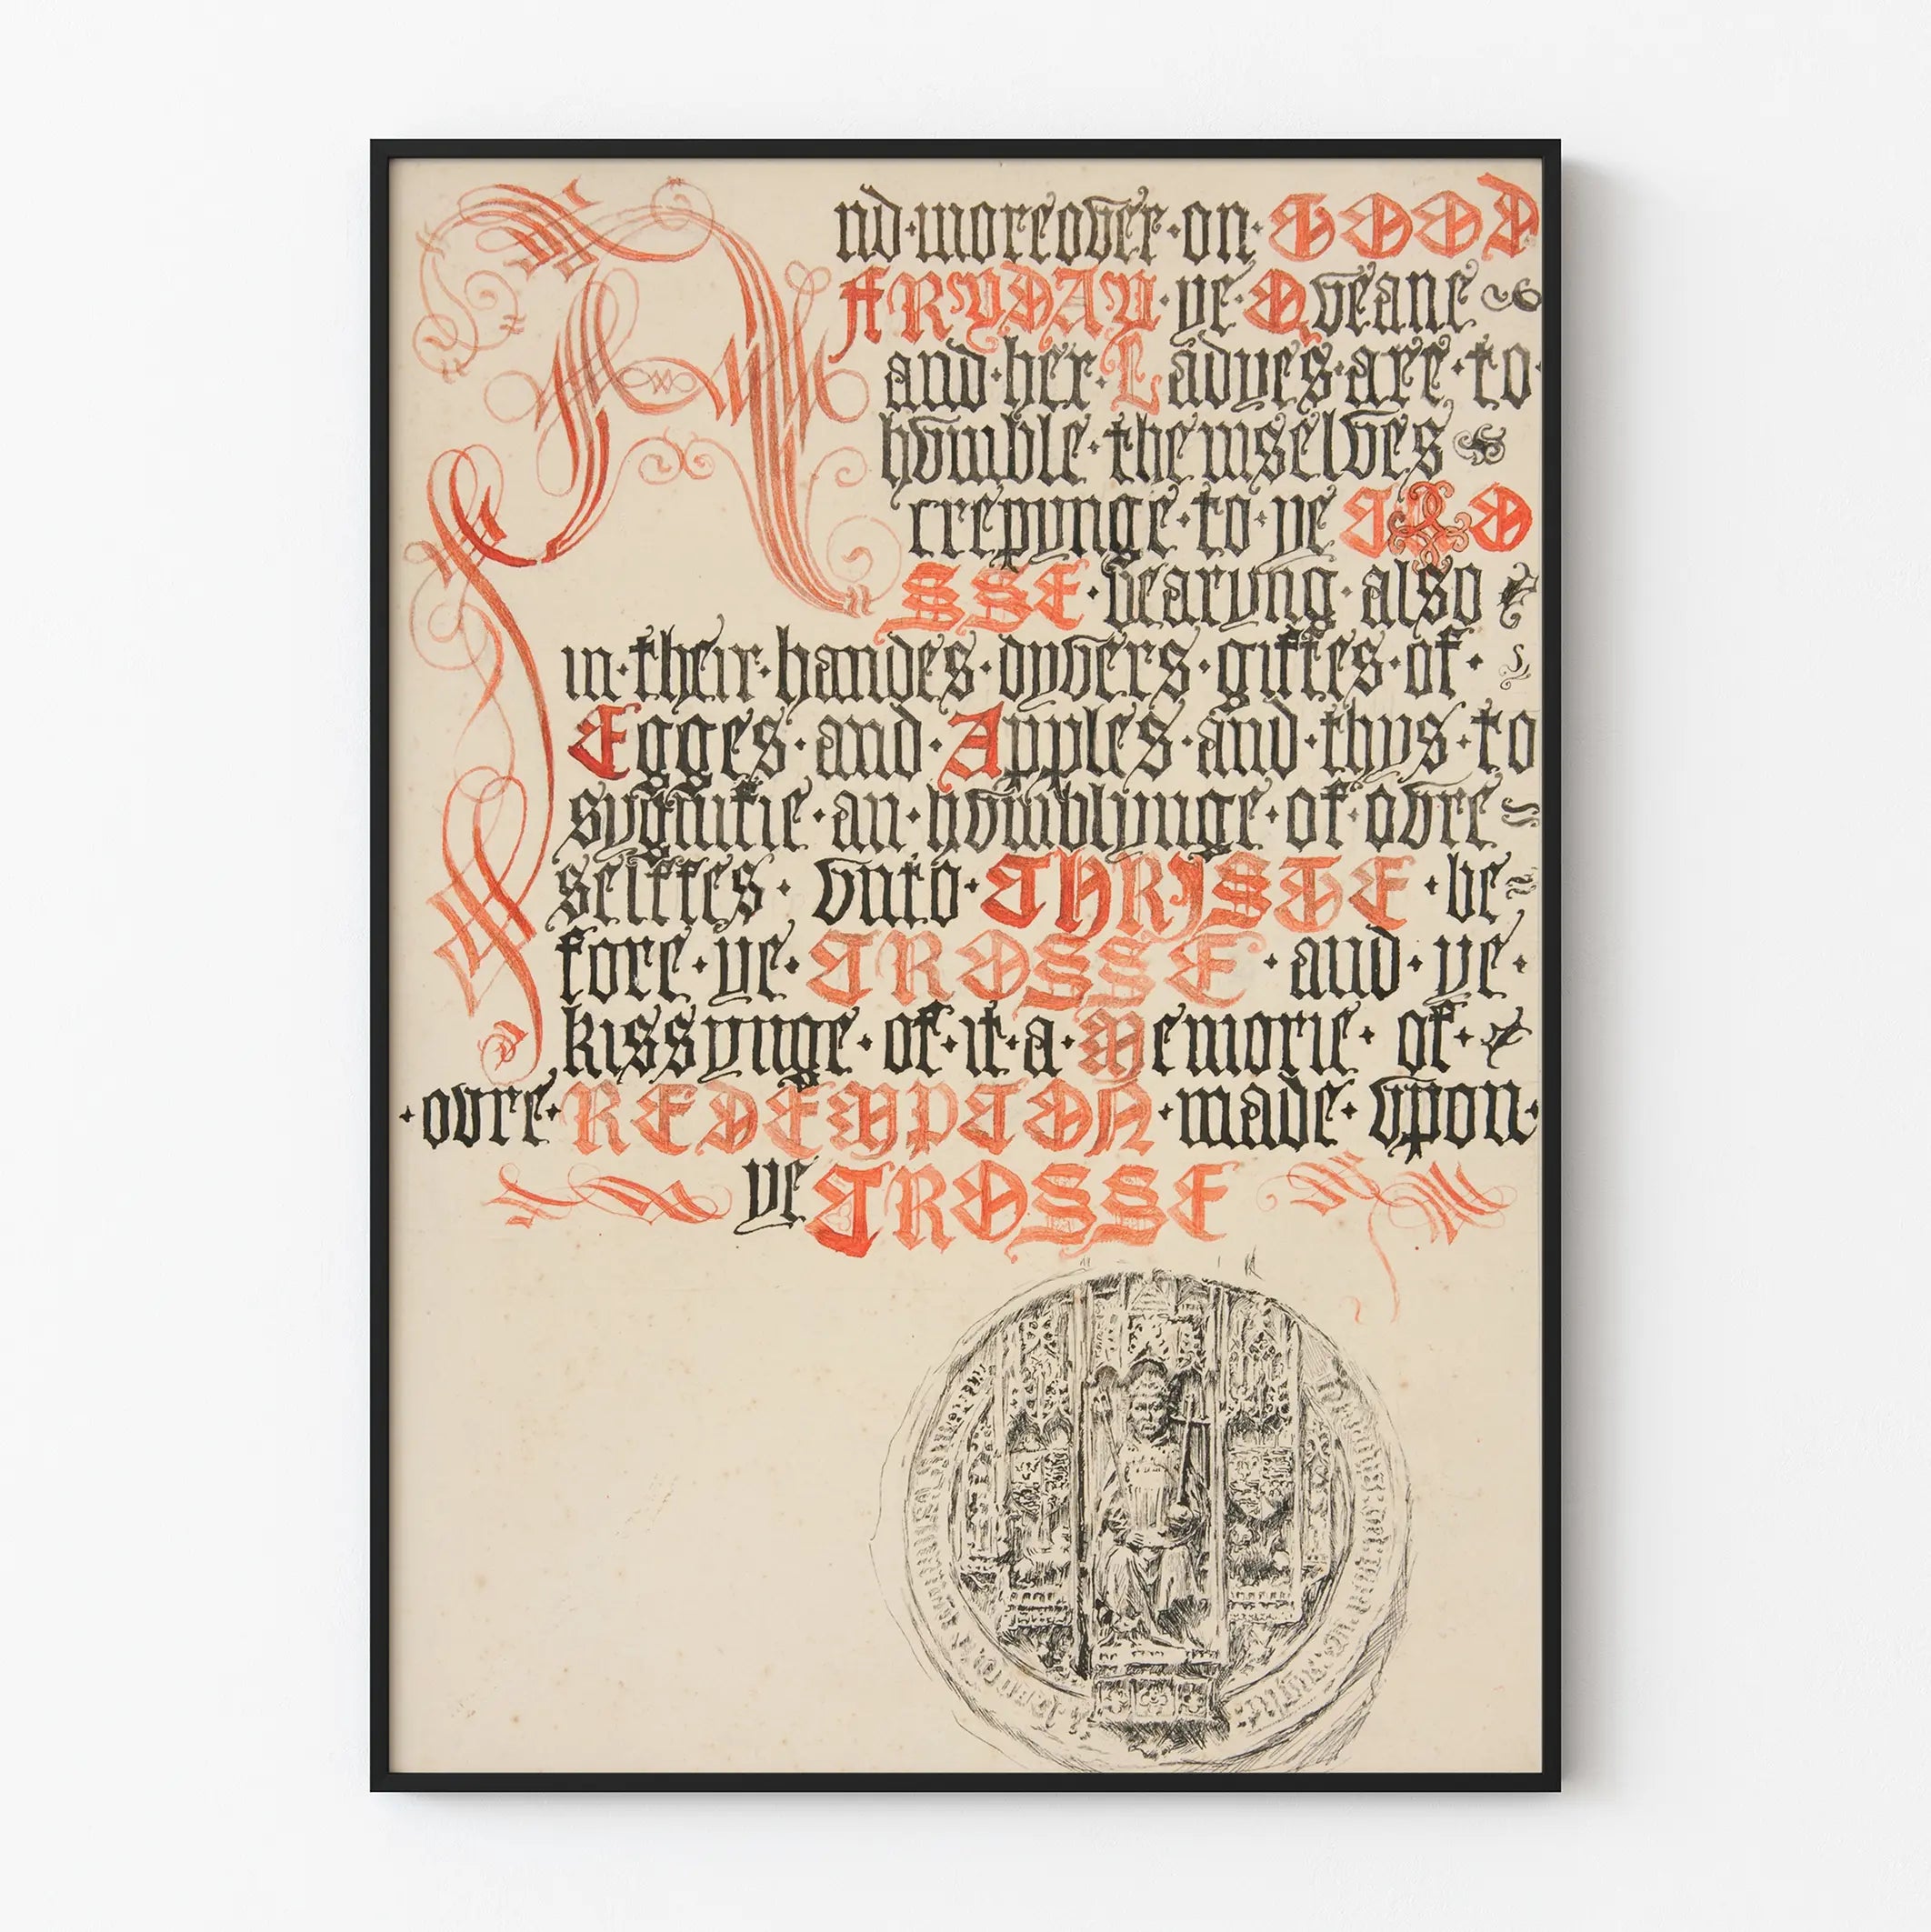 And·moreover·on·GOOD
FRYDAY·ye·Qveane
and·her·Ladyes·are·to·
hvmble·themselves
crepynge·to·ye CRO
SSE·bearyng·also
in·their·handes·dyvers·giftes·of·
Egges·and·Apples·and·thys·to
sygnifie·an·hvmblynge·of·ovre
selffes· vnto·CHRISTE·be
fore·ye·CROSSE·and·ye·
kissynge·of·it·a·Memorie·of·
·ovre·REDEMPCION·made·vpon·
ye CROSSE